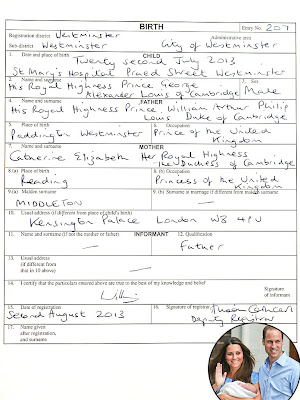 BIRTH
Entry No. 207
Registration district Westminster Administrative area
Sub-district Westminster City of Westminster
1. Date and place of birth CHILD
Twenty second July 2013
St Mary's Hospital Praed Street Westminster
2. Name and surname 3. Sex
His Royal Highness Prince George
Alexander Louis of Cambridge Male
4. Name and surname FATHER
His Royal Highness Prince William Arthur Philip
Louis Duke of Cambridge
5. Place of birth 6. Occupation
Paddington Westminster Prince of the United
Kingdom
7. Name and surname MOTHER
Catherine Elizabeth Her Royal Highness
The Duchess of Cambridge
8.(a) Place of birth 8.(b) Occupation
Reading Princess of the United
Kingdom
9.(a) Maiden surname 9.(b) Surname at marriage if different from maiden surname
MIDDLETON —
10. Usual address (if different from place of child's birth)
Kensington Palace London W8 4PU
11. Name and surname (if not the mother or father) INFORMANT 12. Qualification
— Father
13. Usual address
(if different from
that in 10 above) —
14. I certify that the particulars entered above are true to the best of my knowledge and belief
Signature
of informant
15. Date of registration 16. Signature of registrar
Second August 2013
Deputy Registrar
17. Name given
after registration,
and surname